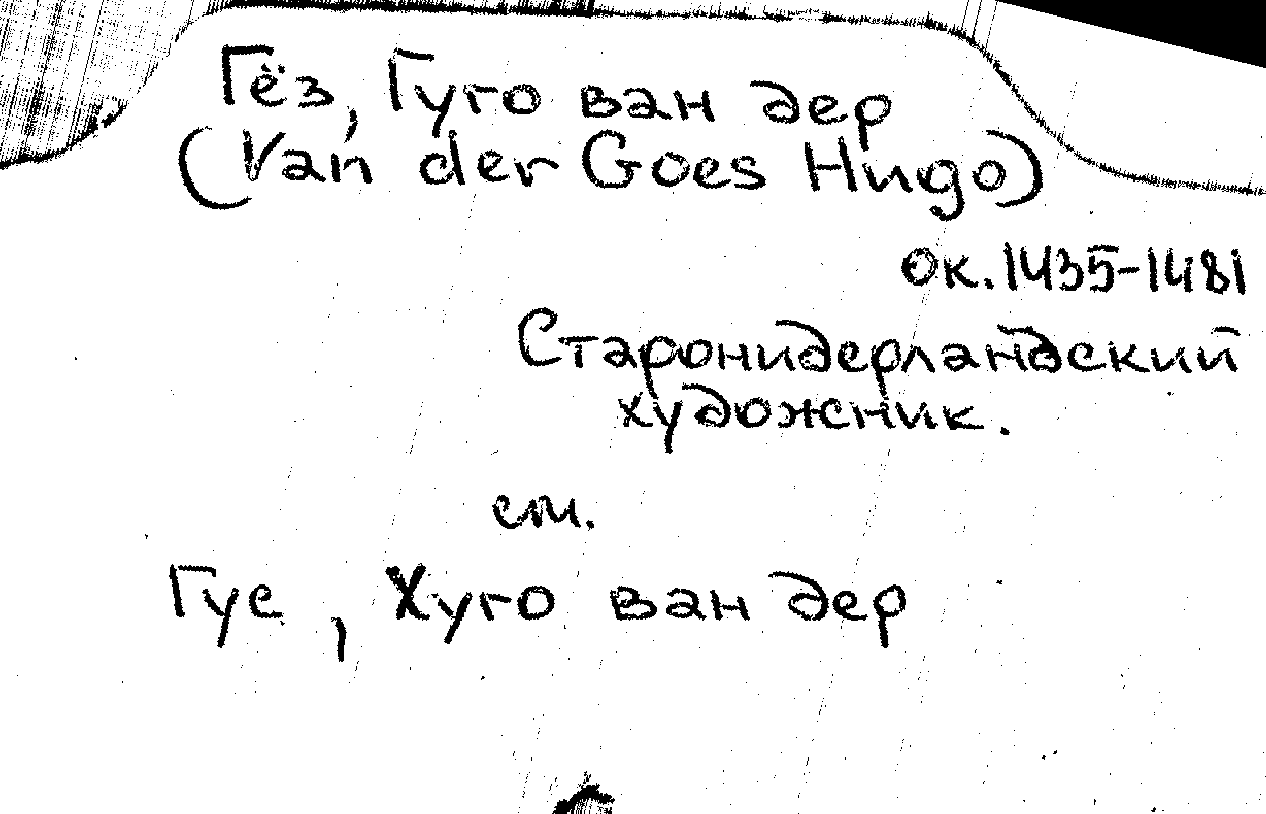 Гёз, Гуго ван дер
(Van der Goes Hugo)
ок. 1435-1481
Старонидерландский
художник.
см.
Гус, Хуго ван дер